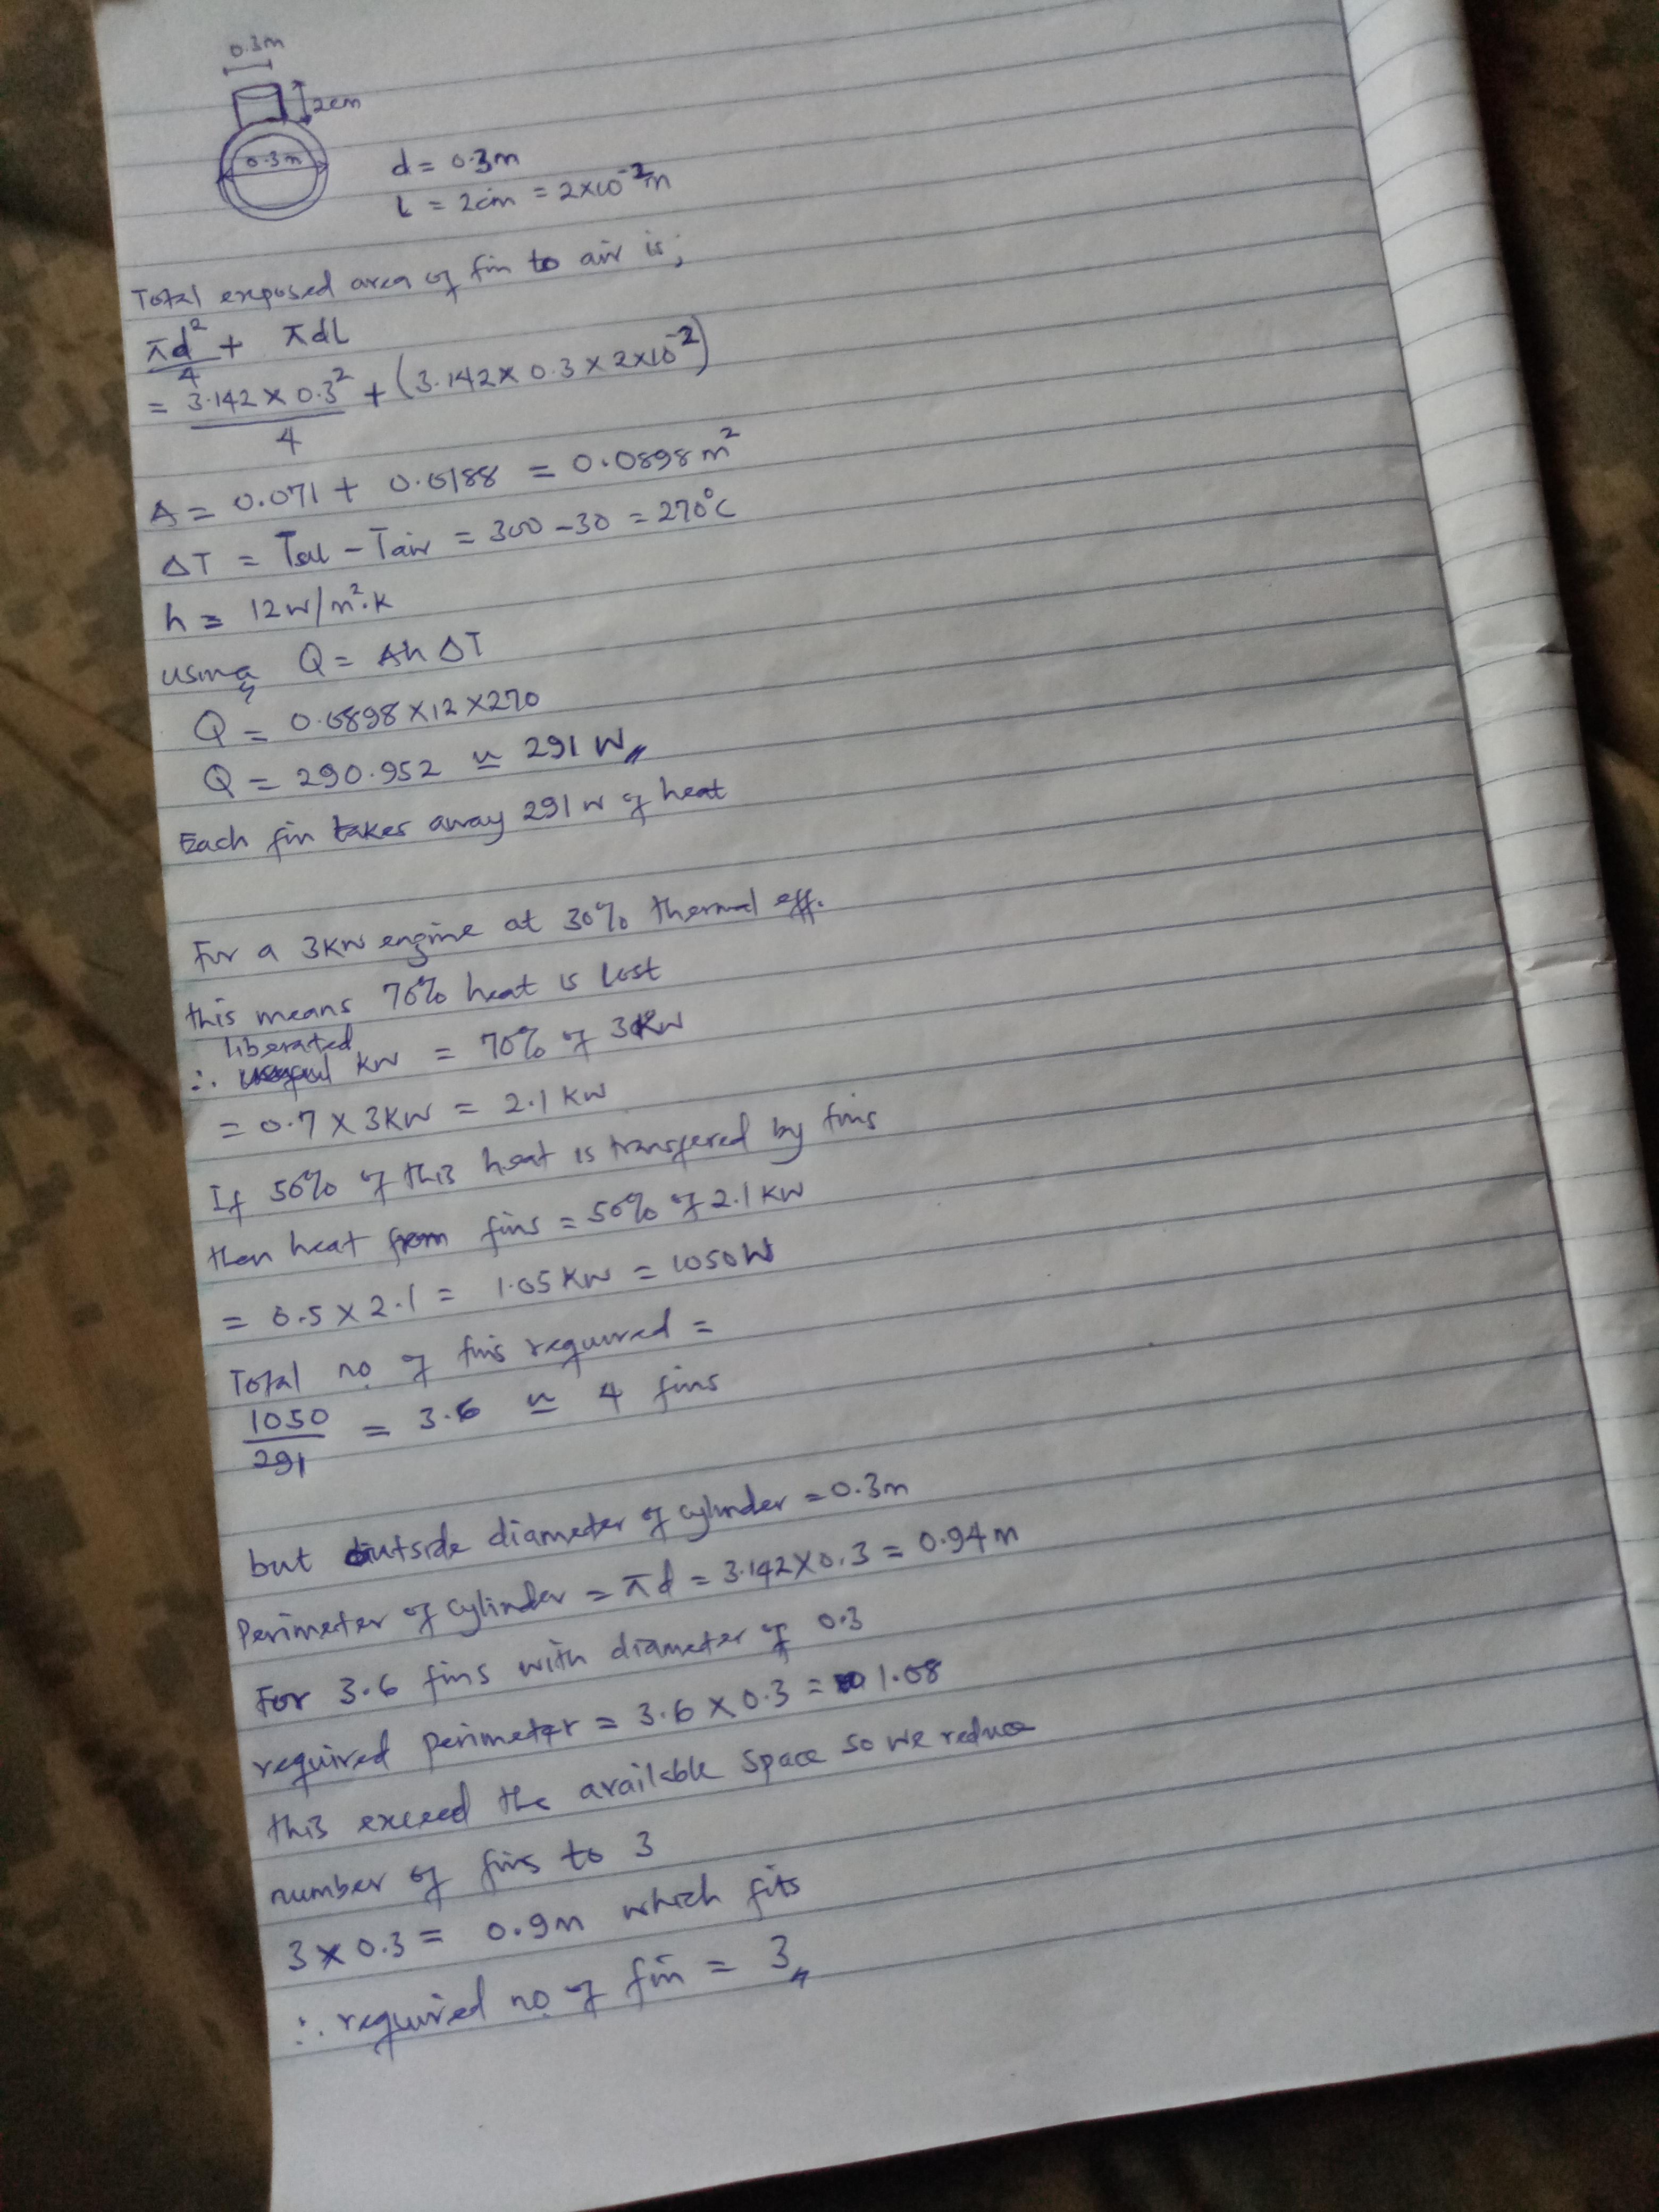 0.3m
2cm
0.3m
d = 0.3m
L = 2cm = 2×10⁻²m
Total exposed area of fin to air is;
πd²/4 + πdl
= 3.142 × 0.3²/4 + (3.142 × 0.3 × 2×10⁻²)
A = 0.071 + 0.0188 = 0.0898m²
ΔT = Tal - Tair = 300 - 30 = 270°C
h = 12W/m².K
using Q = AhΔT
Q = 0.0898 × 12 × 270
Q = 290.952 ≃ 291 W
Each fin takes away 291 W of heat
For a 3KW engine at 30% thermal eff.
this means 70% heat is lost
liberated
∴ KW = 70% of 3KW
= 0.7 × 3KW = 2.1 KW
If 50% of this heat is transfered by fins
then heat from fins = 50% of 2.1 KW
= 0.5 × 2.1 = 1.05 KW = 1050W
Total no. of fins required =
1050/291 = 3.6 ≃ 4 fins
but outside diameter of cylinder = 0.3m
Perimeter of cylinder = πd = 3.142×0.3 = 0.94m
For 3.6 fins with diameter of 0.3
required perimeter = 3.6 × 0.3 = 1.08
this exceed the available space so we reduce
number of fins to 3
3 × 0.3 = 0.9m which fits
∴ required no. of fin = 3